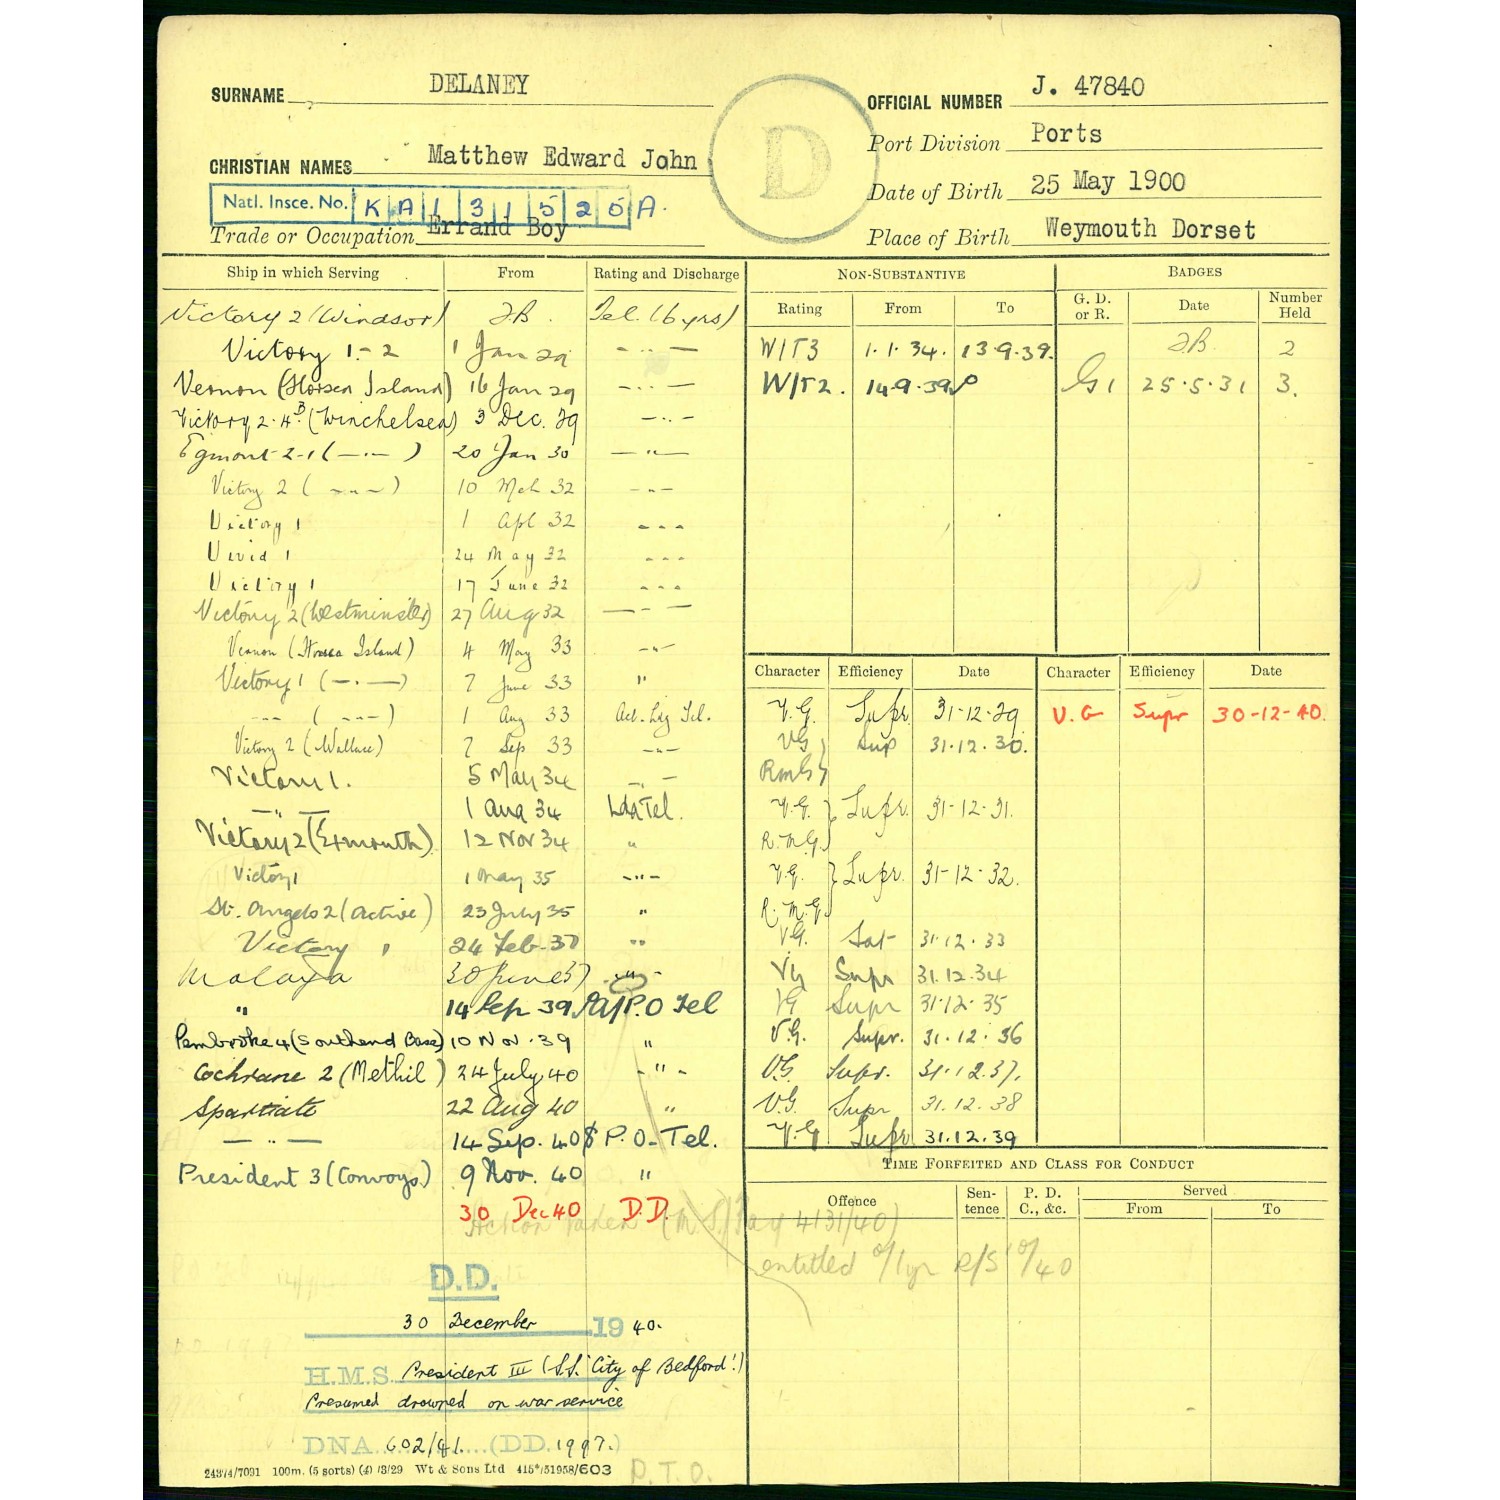 SURNAME DELANEY
OFFICIAL NUMBER J. 47840
Port Division Ports
CHRISTIAN NAMES Matthew Edward John
D
Date of Birth 25 May 1900
Natl. Insce. No. K A 1 3 1 5 2 0 A.
Trade or Occupation Errand Boy
Place of Birth Weymouth Dorset
Ship in which Serving From Rating and Discharge
Victory 2 (Windsor) JB. Tel. (6 yrs)
Victory 1-2 1 Jan 29 - .. -
Vernon (Horsea Island) 16 Jan 29 - .. -
Victory 2. 4B. (Winchelsea) 3 Dec. 29 - .. -
Egmont 2-1 ( - .. - ) 20 Jan 30 - " -
Victory 2 ( - .. - ) 10 Mch 32 - " -
Victory 1 1 Apl 32 - - -
Vivid 1 24 May 32 - - -
Victory 1 17 June 32 - - -
Victory 2 (Westminster) 27 Aug 32 - - -
Vernon (Horsea Island) 4 May 33 - " -
Victory 1 ( - . - ) 7 June 33 "
- - - ( - - - ) 1 Aug 33 Act. Ldg Tel.
Victory 2 (Wallace) 7 Sep 33 - " -
Victory 1. 5 May 34 - " -
- " - 1 Aug 34 Ldg Tel.
Victory 2 (Exmouth) 12 Nov 34 "
Victory 1 1 May 35 - " -
St. Angelo 2 (Active) 23 July 35 "
Victory 1 24 Feb. 37 "
Malaya 30 June 37 - " -
" 14 Sep 39 A/P.O Tel
Pembroke 4 (Southend Base) 10 Nov. 39 "
Cochrane 2 (Methil) 24 July 40 - " -
Spartiate 22 Aug 40 "
- " - 14 Sep. 40 P.O. Tel.
President 3 (Convoys.) 9 Nov. 40 "
30 Dec 40 D.D.
Action Taken (M.S./Pay 4131/40)
D.D.
30 December 1940.
H.M.S. President III (S.S. 'City of Bedford'.)
Presumed drowned on war service
DNA. 602/41. (DD. 1997.)
24374/7091 100m. (5 sorts) (4) /3/29 Wt & Sons Ltd 415*/51958/603
P.T.O.
NON-SUBSTANTIVE
Rating From To
W/T3 1.1.34. 13.9.39.
W/T2. 14.9.39
BADGES
G. D. or R. Date Number Held
JB. 2
G1 25.5.31 3.
Character Efficiency Date Character Efficiency Date
V.G. Supr. 31-12-29 V.G Supr 30-12-40.
VG Sup 31.12.30.
RMG
V.G. Supr. 31-12-31.
R.M.G.
V.G. Supr. 31-12-32.
R.M.G.
VG. Sat 31.12.33
VG Supr 31.12.34
VG Supr 31.12.35
V.G. Supr. 31.12.36
V.G. Supr. 31.12.37.
V.G. Supr 31.12.38
V.G Supr 31.12.39
TIME FORFEITED AND CLASS FOR CONDUCT
Offence Sentence P. D. C., &c. Served
From To
entitled 1yr R/S /40